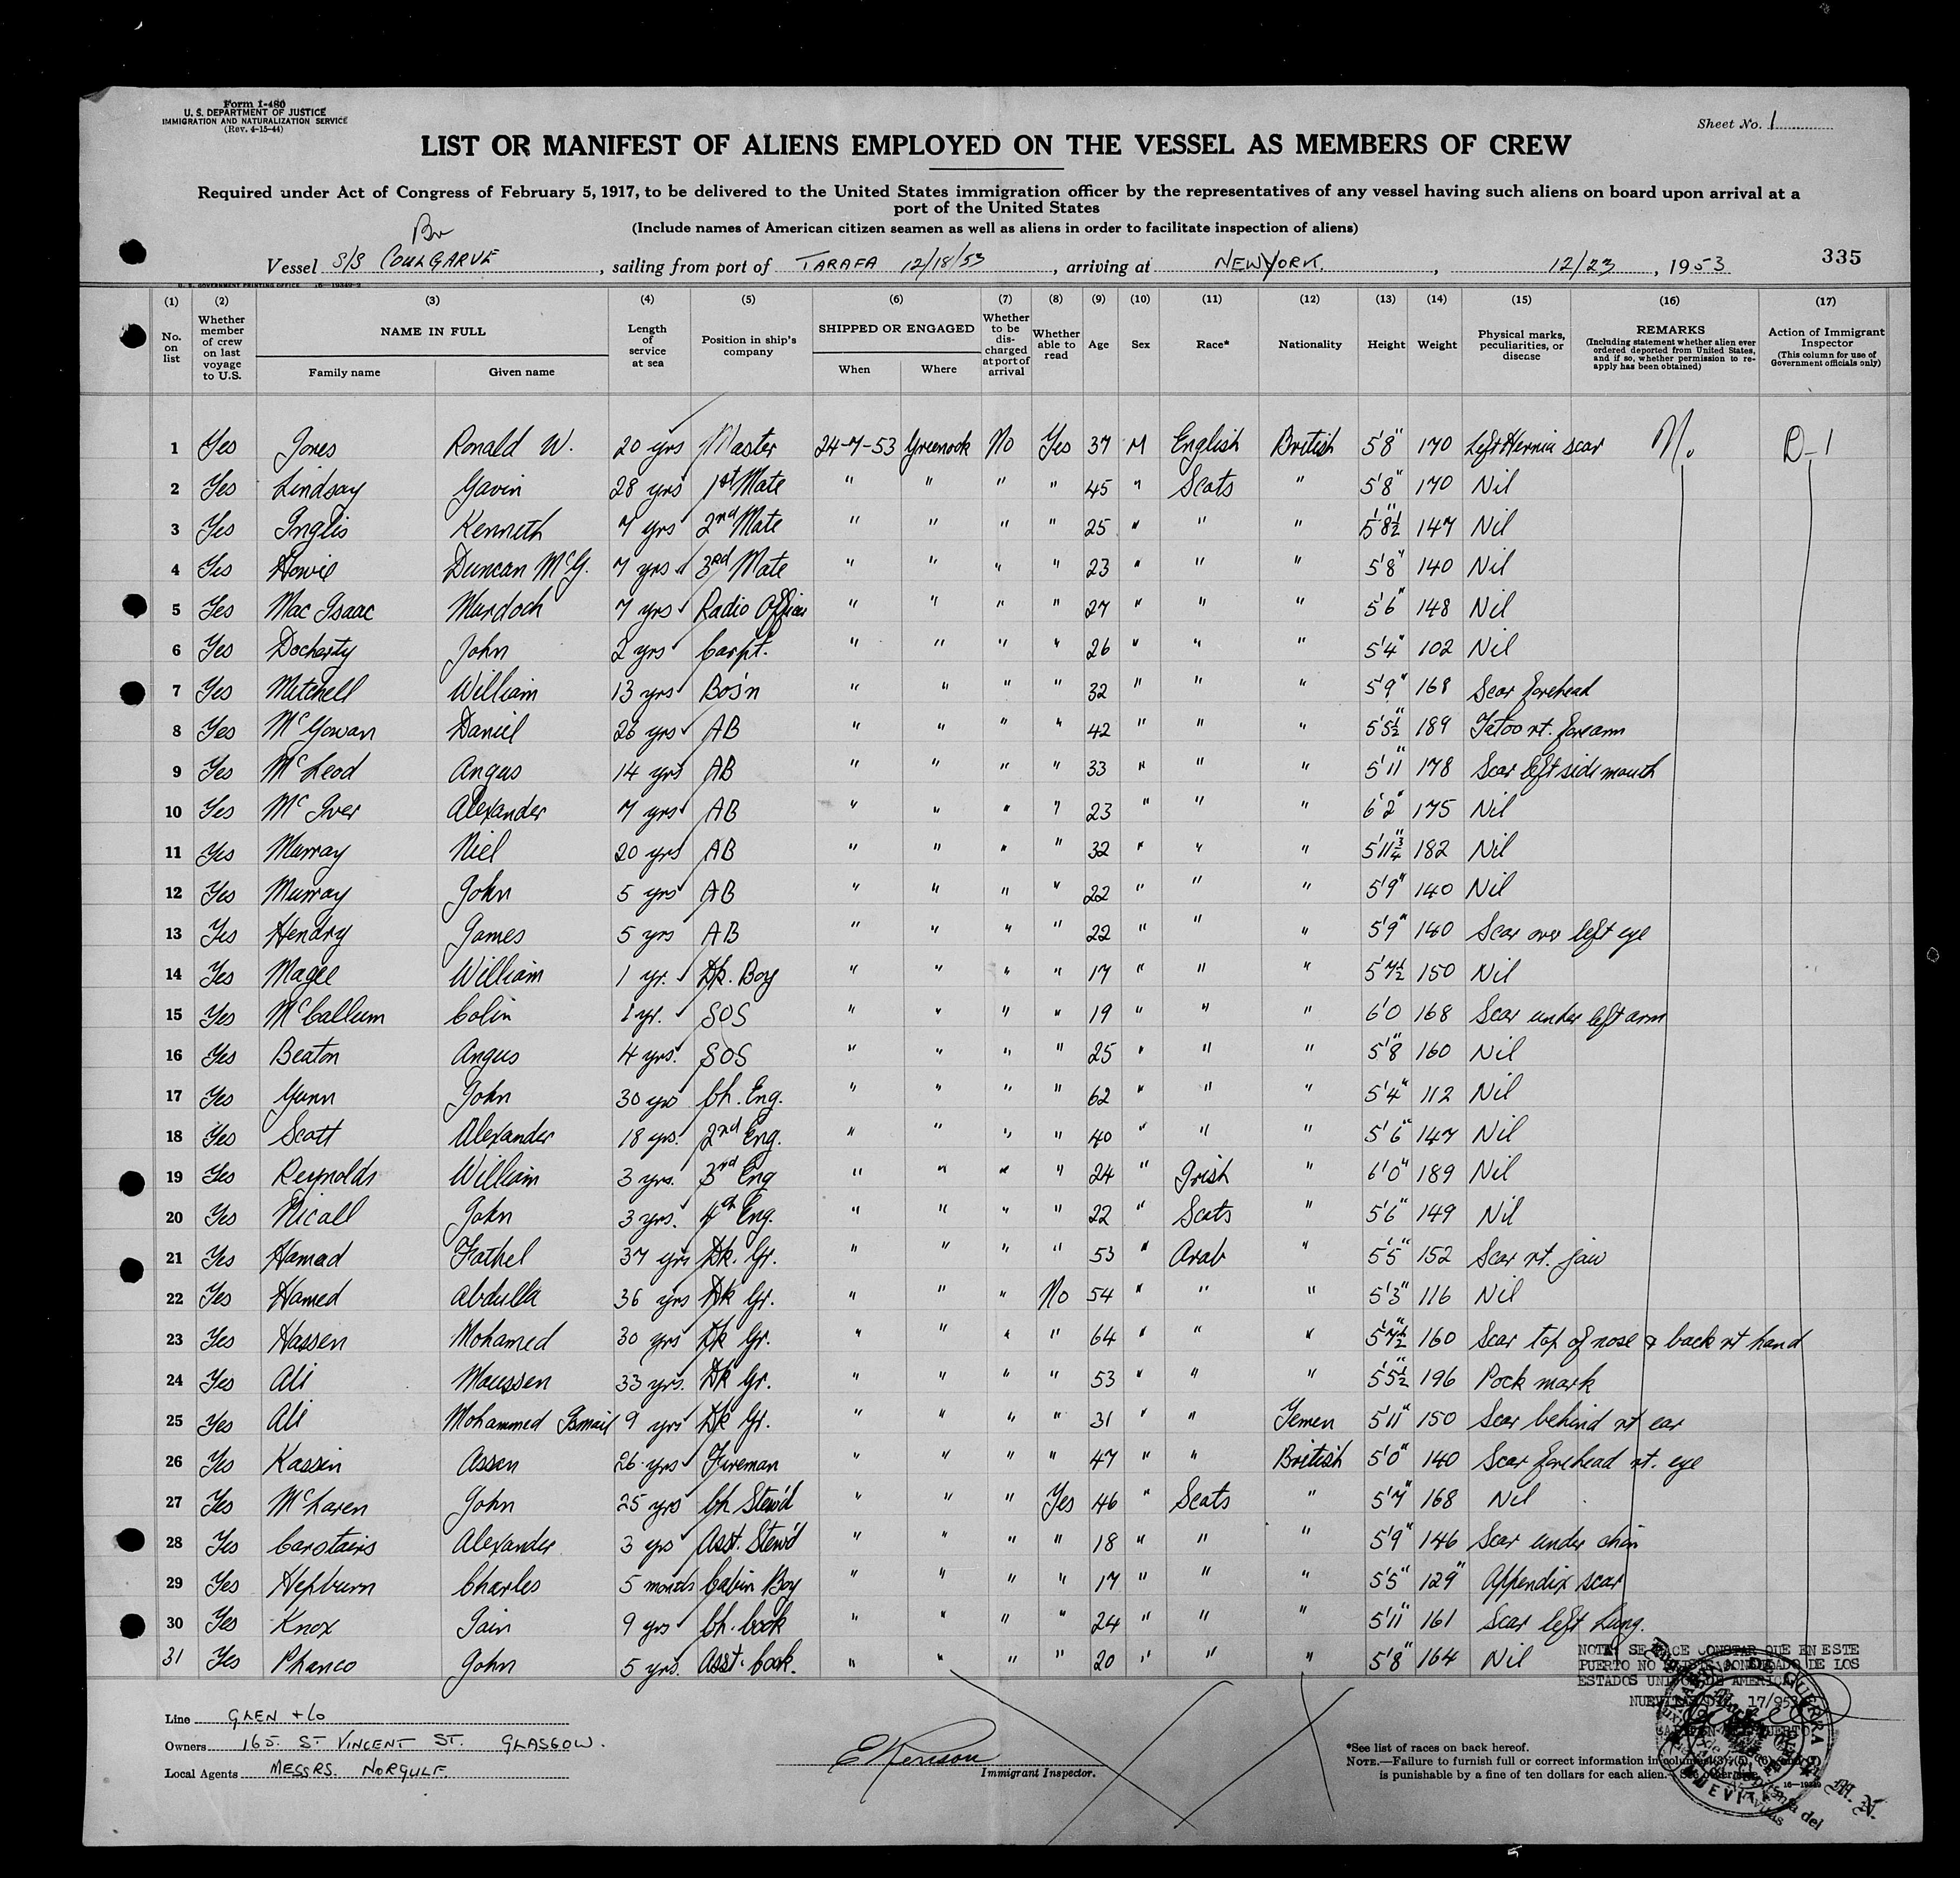 Form I-480
U. S. DEPARTMENT OF JUSTICE
IMMIGRATION AND NATURALIZATION SERVICE
(Rev. 4-15-44)
Sheet No. 1
LIST OR MANIFEST OF ALIENS EMPLOYED ON THE VESSEL AS MEMBERS OF CREW
Required under Act of Congress of February 5, 1917, to be delivered to the United States immigration officer by the representatives of any vessel having such aliens on board upon arrival at a
port of the United States
(Include names of American citizen seamen as well as aliens in order to facilitate inspection of aliens)
Br
Vessel S/S COULGARVE, sailing from port of TARAFA 12/18/53, arriving at NEW YORK., 12/23, 1953 335
U. S. GOVERNMENT PRINTING OFFICE 16—19349-2
(1) (2) (3) (4) (5) (6) (7) (8) (9) (10) (11) (12) (13) (14) (15) (16) (17)
No. on list
Whether member of crew on last voyage to U.S.
NAME IN FULL
Family name Given name
Length of service at sea
Position in ship's company
SHIPPED OR ENGAGED
When Where
Whether to be discharged at port of arrival
Whether able to read
Age Sex Race* Nationality Height Weight
Physical marks, peculiarities, or disease
REMARKS
(Including statement whether alien ever ordered deported from United States, and if so, whether permission to re-apply has been obtained)
Action of Immigrant Inspector
(This column for use of Government officials only)
1 Yes Jones Ronald W. 20 yrs Master 24-7-53 Greenock No Yes 37 M English British 5'8" 170 Left Hernia scar N. D-1
2 Yes Lindsay Gavin 28 yrs 1st Mate " " " " 45 " Scots " 5'8" 170 Nil
3 Yes Inglis Kenneth 7 yrs 2nd Mate " " " " 25 " " " 5'8½" 147 Nil
4 Yes Howie Duncan McG. 7 yrs 3rd Mate " " " " 23 " " " 5'8" 140 Nil
5 Yes Mac Isaac Murdoch 7 yrs Radio Officer " " " " 27 " " " 5'6" 148 Nil
6 Yes Docherty John 2 yrs Carpt. " " " " 26 " " " 5'4" 102 Nil
7 Yes Mitchell William 13 yrs Bos'n " " " " 32 " " " 5'9" 168 Scar forehead
8 Yes McGowan Daniel 26 yrs AB " " " " 42 " " " 5'5½" 189 Tatoo rt. forearm
9 Yes McLeod Angus 14 yrs AB " " " " 33 " " " 5'11" 178 Scar left side mouth
10 Yes McIver Alexander 7 yrs AB " " " " 23 " " " 6'2" 175 Nil
11 Yes Murray Niel 20 yrs AB " " " " 32 " " " 5'11¾" 182 Nil
12 Yes Murray John 5 yrs AB " " " " 22 " " " 5'9" 140 Nil
13 Yes Hendry James 5 yrs AB " " " " 22 " " " 5'9" 140 Scar over left eye
14 Yes Magee William 1 yr. Dk. Boy " " " " 17 " " " 5'7½" 150 Nil
15 Yes McCallum Colin 1 yr. SOS " " " " 19 " " " 6'0 168 Scar under left arm
16 Yes Beaton Angus 4 yrs. SOS " " " " 25 " " " 5'8" 160 Nil
17 Yes Gunn John 30 yrs Ch. Eng. " " " " 62 " " " 5'4" 112 Nil
18 Yes Scott Alexander 18 yrs. 2nd Eng. " " " " 40 " " " 5'6" 147 Nil
19 Yes Reynolds William 3 yrs. 3rd Eng " " " " 24 " Irish " 6'0" 189 Nil
20 Yes Nicall John 3 yrs. 4th Eng. " " " " 22 " Scots " 5'6" 149 Nil
21 Yes Hamad Fathel 37 yrs Dk. Gr. " " " " 53 " Arab " 5'5" 152 Scar rt. jaw
22 Yes Hamed Abdulla 36 yrs Dk Gr. " " " No 54 " " " 5'3" 116 Nil
23 Yes Hassen Mohamed 30 yrs Dk Gr. " " " " 64 " " " 5'7½" 160 Scar top of nose & back rt hand
24 Yes Ali Moussen 33 yrs. Dk Gr. " " " " 53 " " " 5'5½" 196 Pock mark
25 Yes Ali Mohammed Ismail 9 yrs Dk Gr. " " " " 31 " " Yemen 5'11" 150 Scar behind rt ear
26 Yes Kassin Assen 26 yrs Fireman " " " " 47 " " British 5'0" 140 Scar forehead rt. eye
27 Yes McLaren John 25 yrs Ch Stew'd " " " Yes 46 " Scots " 5'7" 168 Nil
28 Yes Carstairs Alexander 3 yrs Asst. Stew'd " " " " 18 " " " 5'9" 146 Scar under chin
29 Yes Hepburn Charles 5 months Cabin Boy " " " " 17 " " " 5'5" 129 Appendix scar
30 Yes Knox Iain 9 yrs Ch. Cook " " " " 24 " " " 5'11" 161 Scar left Lung.
31 Yes Phanco John 5 yrs. Asst. Cook. " " " " 20 " " " 5'8" 164 Nil
NOTA SE HACE CONSTAR QUE EN ESTE
PUERTO NO EXISTE CONSULADO DE LOS
ESTADOS UNIDOS DE AMERICA
NUEVITAS 17/953
Line GLEN + Co
Owners 165 ST VINCENT ST. GLASGOW.
Local Agents MESSRS. NORGULF.
Immigrant Inspector.
*See list of races on back hereof.
NOTE.—Failure to furnish full or correct information in columns (3), (5), (6),
is punishable by a fine of ten dollars for each alien.
16—19349